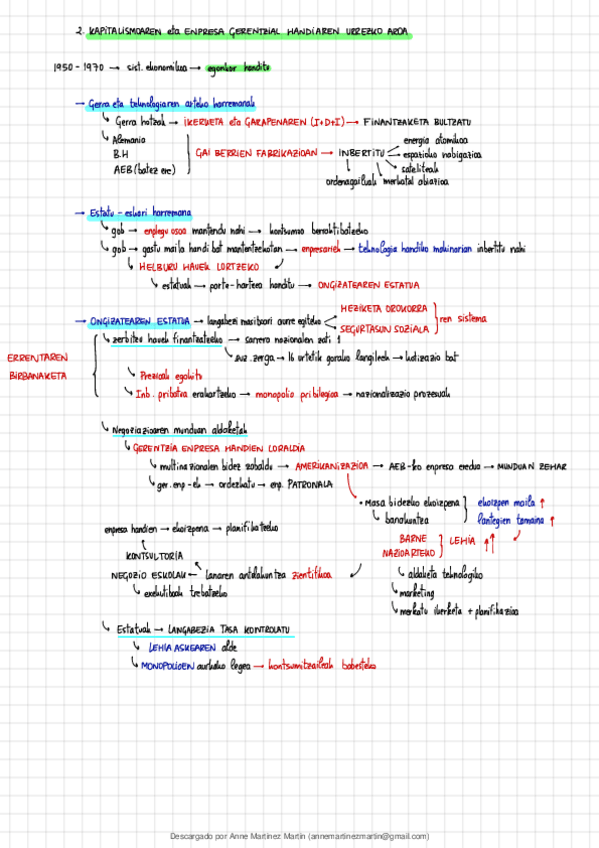 2. KAPITALISMOAREN eta ENPRESA GERENTZIAL HANDIAREN URREZKO AROA
1950 - 1970 → sist. ekonomikoa → egonkor handitu
→ Gerra eta teknologiaren arteko harremanak
↳ Gerra hotzak → IKERKETA eta GARAPENAREN (I+D+I) → FINANTZAKETA BULTZATU
↳ Alemania
B.H
AEB (batez ere)
GAI BERRIEN FABRIKAZIOAN → INBERTITU
energia atomikoa
espazioko nabigazioa
sateliteak
ordenagailuak merkatal abiazioa
→ Estatu - eskari harremana
↳ gob → enplegu osoa mantendu nahi → kontsumoa bersaktibatzeko
↳ gob → gastu maila handi bat mantentzekotan → enpresariek → teknologia handiko makinarian inbertitu nahi
↳ HELBURU HAUEK LORTZEKO
↳ estatuak → parte-hartzea handitu → ONGIZATEAREN ESTATUA
→ ONGIZATEAREN ESTATUA → langabezi masiboari aurre egiteko
HEZIKETA OROKORRA
SEGURTASUN SOZIALA
ren sistema
↳ zerbitzu hauek finantzatzeko → sarrera nazionalen zati 1
↳ zuz. zerga → 16 urtetik gorako langileek → kotizazio bat
ERRENTAREN
BIRBANAKETA
↳ Prezioak egokitu
↳ Inb. pribatua erakartzeko → monopolio pribilegioa → nazionalizazio prozesuak
↳ Negoziazioaren munduan aldaketak
↳ GERENTZIA ENPRESA HANDIEN LORALDIA
↳ multinazionalen bidez zabaldu → AMERIKANIZAZIOA → AEB-ko enpresa eredua → MUNDUAN ZEHAR
↳ ger. enp-ek → ordezkatu → enp. PATRONALA
• Masa bidezko ekoizpena
↳ banakuntza
ekoizpen maila ↑
lantegien tamaina ↑
enpresa handien → ekoizpena → planifikatzeko
BARNE
NAZIOARTEKO
LEHIA ↑↑
KONTSULTORIA
NEGOZIO ESKOLAK ← lanaren antolakuntza zientifikoa
↳ exekutiboak trebatzeko
↳ aldaketa teknologiko
↳ marketing
↳ merkatu ikerketa + planifikazioa
↳ Estatuak → LANGABEZIA TASA KONTROLATU
↳ LEHIA ASKEAREN alde
↳ MONOPOLIOEN aurkako legea → kontsumitzaileak babesteko
Descargado por Anne Martinez Martin (annemartinezmartin@gmail.com)